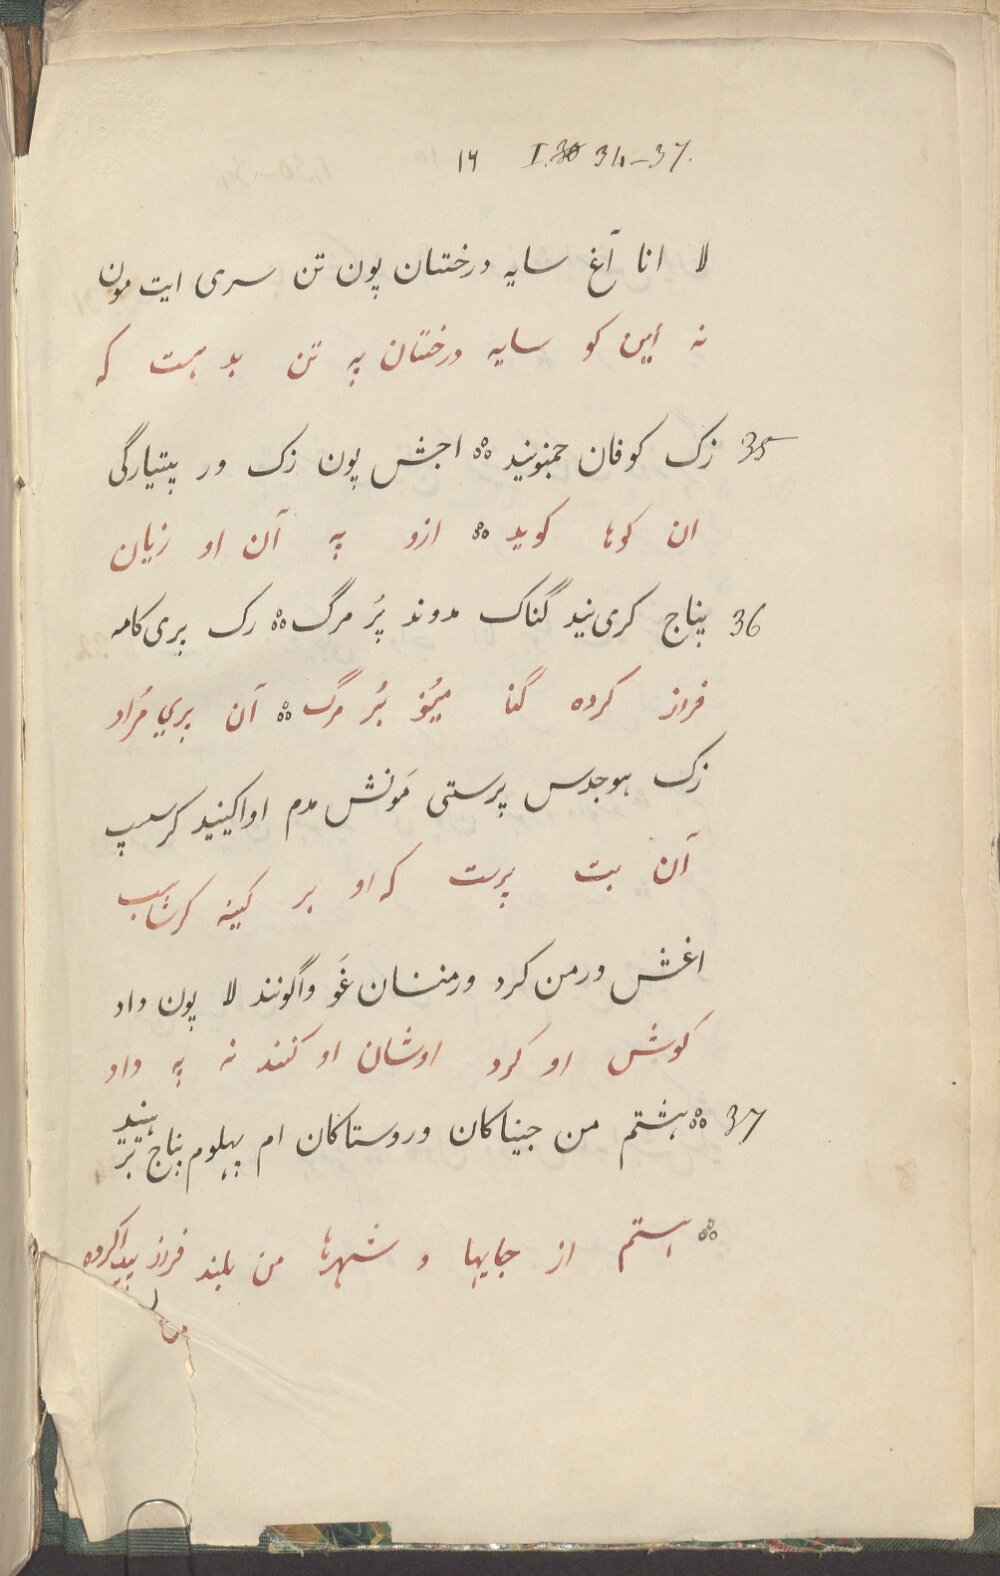 ۱۶ I. 34-37.
لا انا آغ سایه درختان پون تن سری ایت مون
نه این کو سایه درختان په تن بد هست که
35 زک کوفان حمنوند ஃ اجش پون زک ور پتیارگی
ان کوها کوید ஃ ازو په آن او زیان
36 پناج کری نید گناک مدوند پُر مرگ ஃ زک بری کامه
فراز کرده گنا مینُو پُر مرگ ஃ آن بری مُراد
زک هوجدس پرستی مَونش مدم اواکینید کرسپ
آن بت پرست که او بر کینه کرشاسب
اغش ورمن کرد ورمنشان غَو واگونند لا پون داد
کوش او کرد اوشان او کنند نه په داد
37 ஃ هشتم من جیناکان وروستاکان ام پهلوم پناج تر هیند
ஃ هستم از جایها و شهرها من بلند فراز پیدا کرده
من